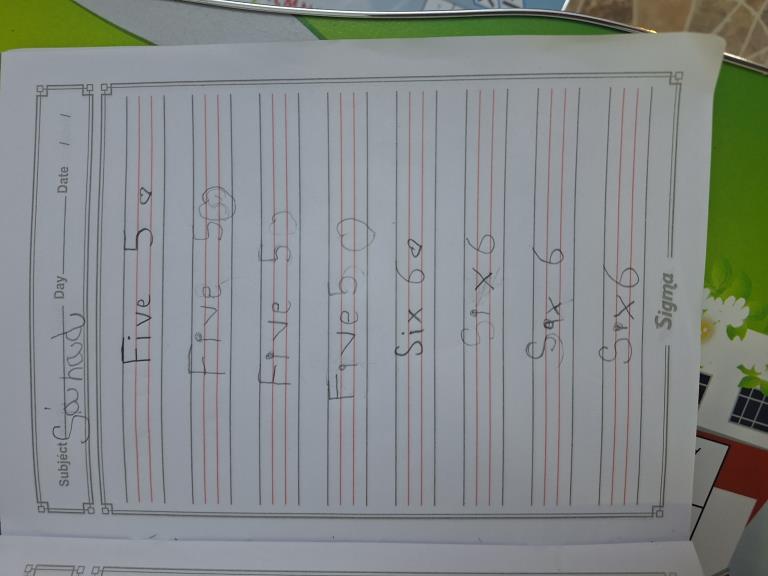 Subject Day Date / /
Five 5
Five 5
Five 5
Five 5
Six 6
Six 6
Six 6
Six 6
Sigma